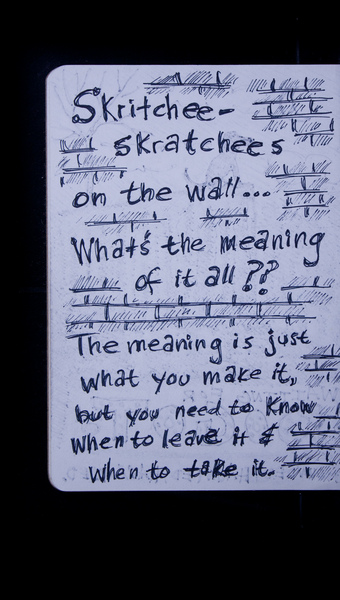 Skritchee-
skratchees
on the wall...
What's the meaning
of it all ??
The meaning is just
what you make it,
but you need to know
when to leave it &
when to take it.